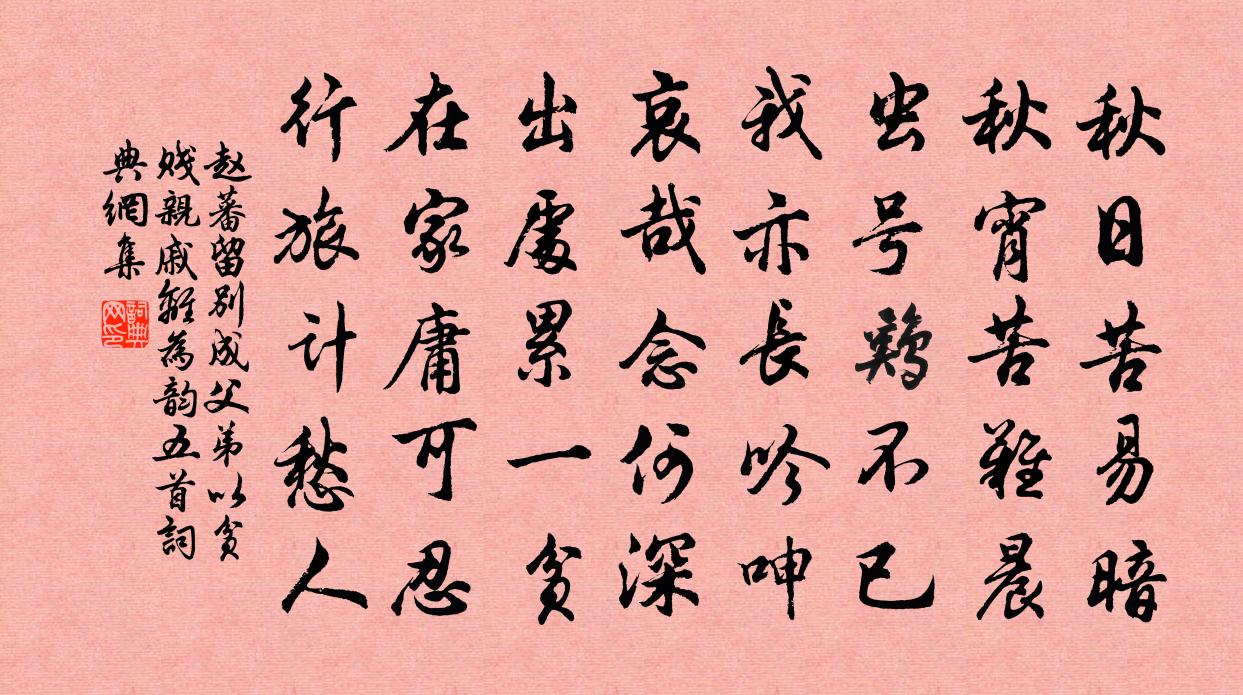 秋日苦易暗
秋宵苦難晨
虫号鶏不已
我亦長吟呻
哀哉念何深
出處累一貧
在家庸可忍
行旅計愁人
赵蕃留别成父弟以貧
賤親戚離為韵五首詞
典網集
詞典网印